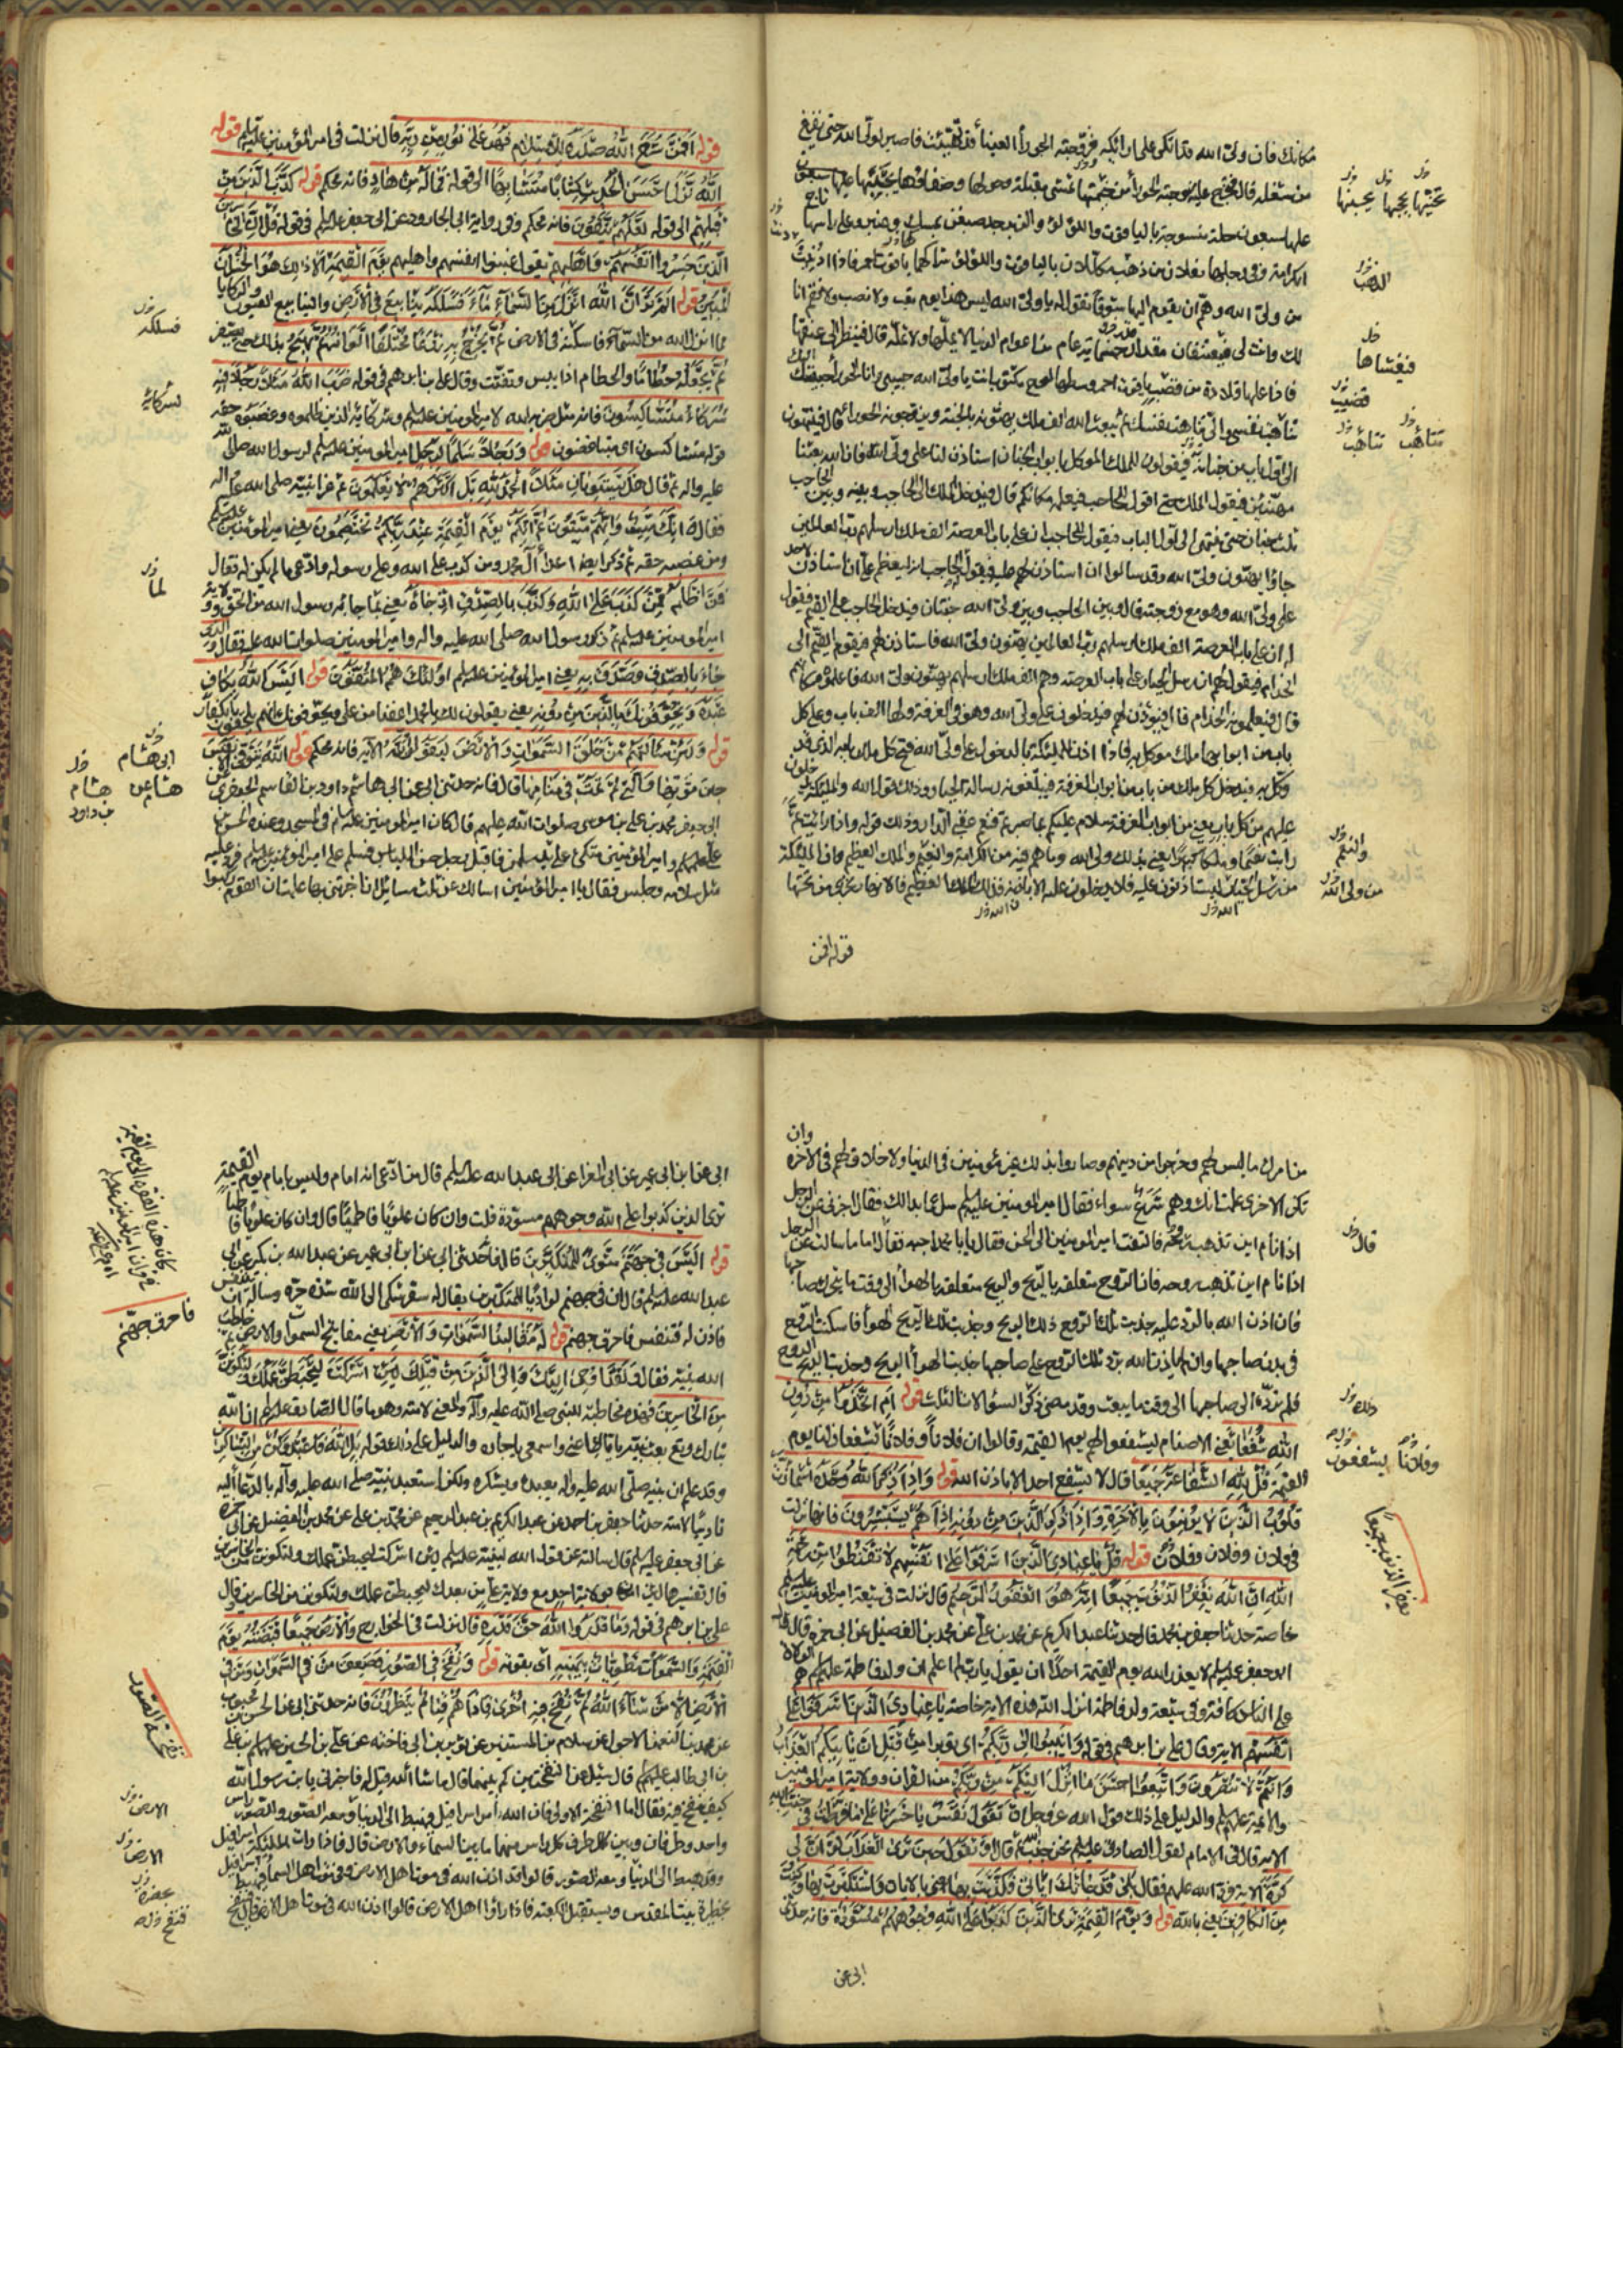 مكانك فان ولي الله قد اتكى على ارائكه فزوجته الحوراء العيناء قد تهيئت فاصبر لولي الله حتى يفرغ
من شغله قال فتخرج عليه زوجته الحوراء من خيمتها تمشي مقبلة وحولها وصفاؤها يحيينها عليها سبعون
عليها سبعون حلة منسوجة بالياقوت واللؤلؤ والزبرجد صبغن بمسك وعنبر وعلى راسها تاج
الكرامة وفي رجلها نعلان من ذهب مكللان بالياقوت واللؤلؤ شراكهما ياقوت احمر فاذا ادنيت
من ولي الله وهم ان يقوم اليها شوقا تقول له يا ولي الله ليس هذا يوم تعب ولا نصب ولا تقم انا
لك وانت لي فيعتنقان مقدار خمسمائة عام من اعوام الدنيا لا يملها ولا تمله قال فينظر الى عنقها
فاذا عليها قلادة من قصب ياقوت احمر وسطها لوح مكتوب انت يا ولي الله حبيبي وانا الحوراء حبيبتك
اليك تناهت نفسي والي تناهت نفسك ثم يبعث الله الف ملك يهنئونه بالجنة ويزوجونه الحوراء قال فينتهون
الى اول باب من جنانه فيقولون للملك الموكل بابواب الجنان استاذن لنا على ولي الله فان الله بعثنا
مهنئين فيقول الملك حتى اقول للحاجب فيعلمه مكانكم قال فيدخل الملك الى الحاجب وبينه وبين الحاجب
ثلث جنان حتى ينتهي الى اول الباب فيقول للحاجب ان على باب العرصة الف ملك ارسلهم رب العالمين
جاؤا يهنئون ولي الله وقد سالوا ان استاذن لهم عليه فيقول الحاجب انه ليعظم علي ان استاذن لاحد
على ولي الله وهو مع زوجته قال وبين الحاجب وبين ولي الله جنتان فيدخل الحاجب على القيم فيقول
له ان على باب العرصة الف ملك ارسلهم رب العالمين يهنئون ولي الله فاستاذن لهم فيقوم القيم الى
الخدام فيقول لهم ان رسل الجبار على باب العرصة وهم الف ملك ارسلهم يهنئون ولي الله فاعلموه مكانهم
قال فيعلمونه الخدام قال فيؤذن لهم فيدخلون على ولي الله وهو في الغرفة ولها الف باب وعلى كل
باب من ابوابها ملك موكل به فاذا اذن للملئكة بالدخول على ولي الله فتح كل ملك بابه الذي قد
وكل به فيدخل كل ملك من باب من ابواب الغرفة فيبلغونه رسالة الجبار وذلك قول الله والملئكة يدخلون
عليهم من كل باب يعني من ابواب الغرفة سلام عليكم بما صبرتم فنعم عقبى الدار وذلك قوله واذا رايت ثم
رايت نعيما وملكا كبيرا يعني بذلك ولي الله وما هم فيه من الكرامة والنعيم والملك العظيم وان الملئكة
من رسل الجبار ليستاذنون عليه فلا يدخلون عليه الا باذنه فذلك الملك العظيم والانهار تجري من تحتها
الذهب
فيغشاها
قضيب
والنعيم
من ولي الله
قوله افمن
قوله افمن شرح الله صدره للاسلام فهو على نور من ربه قال نزلت في امير المؤمنين عليه السلم قوله
الله نزل احسن الحديث كتابا متشابها الى قوله فما له من هاد فانه محكم قوله كذب الذين من
قبلهم الى قوله لعلهم يتقون فانه محكم وفي رواية ابي الجارود عن ابي جعفر عليه السلم في قوله قل ان الخاسرين
الذين خسروا انفسهم واهليهم يقول غبنوا انفسهم واهليهم يوم القيمة الا ذلك هو الخسران
المبين قوله الم تر ان الله انزل من السماء ماء فسلكه ينابيع في الارض والينابيع العيون والركايا
مما انزل الله من السماء فاسكنه في الارض ثم يخرج به زرعا مختلفا الوانه ثم يهيج بذلك حتى يصفر
ثم يجعله حطاما والحطام اذا يبس وتفتت وقال علي بن ابرهيم في قوله ضرب الله مثلا رجلا فيه
شركاء متشاكسون فانه مثل ضربه الله لامير المؤمنين عليه السلم وشركائه الذين ظلموه وغصبوه حقه
قوله متشاكسون اي متباغضون قوله ورجلا سلما لرجل امير المؤمنين عليه السلم لرسول الله صلى الله
عليه واله ثم قال هل يستويان مثلا الحمد لله بل اكثرهم لا يعلمون ثم عزا نبيه صلى الله عليه واله
فقال انك ميت وانهم ميتون ثم انكم يوم القيمة عند ربكم تختصمون يعني امير المؤمنين عليه السلم
ومن غصبه حقه ثم ذكر ايضا اعداء آل محمد ومن كذب على الله وعلى رسوله وادعى ما لم يكن له فقال
فمن اظلم ممن كذب على الله وكذب بالصدق اذ جاءه يعني بما جاء به رسول الله من الحق وولاية
امير المؤمنين عليه السلم ثم ذكر رسول الله صلى الله عليه واله وامير المؤمنين صلوات الله عليه فقال والذي
جاء بالصدق وصدق به يعني امير المؤمنين عليه السلم اولئك هم المتقون قوله اليس الله بكاف
عبده ويخوفونك بالذين من دونه يعني يقولون لك يا محمد اعفنا من علي ويخوفونك بانهم يلحقون بالكفار
قوله ولئن سالتهم من خلق السموات والارض ليقولن الله الاية فانه محكم قوله الله يتوفى الانفس
حين موتها والتي لم تمت في منامها قال فانه حدثني ابي عن ابي هاشم داود بن القاسم الجعفري عن
ابي جعفر محمد بن علي بن موسى صلوات الله عليهم قال كان امير المؤمنين عليه السلم في المسجد وعنده الحسن بن
علي عليهم السلم وامير المؤمنين متكئ على يد سلمن فاقبل رجل حسن اللباس فسلم على امير المؤمنين عليه السلم فرد عليه
مثل سلامه وجلس فقال يا امير المؤمنين اسالك عن ثلث مسائل ان اخبرتني بها علمت ان القوم ركبوا
فسلكه
شركائه
لما
ابي هشام
هشام عن هشام
بن داود
من امرك ما ليس لهم وخرجوا من دينهم وصاروا بذلك غير مؤمنين في الدنيا ولا خلاق لهم في الاخرة وان
تكن الاخرى علمت انك وهم شرع سواء فقال امير المؤمنين عليه السلم سل عما بدا لك فقال اخبرني عن الرجل
اذا نام اين تذهب روحه فالتفت امير المؤمنين الى الحسن فقال يا ابا محمد اجبه فقال اما ما سالت عن الرجل
اذا نام اين تذهب روحه فان الروح متعلقة بالريح والريح متعلقة بالهواء الى وقت ما يتحرك صاحبها
فان اذن الله بالرد عليه جذبت تلك الروح ذلك الريح وجذبت تلك الريح الهواء فاسكنت الروح
في بدن صاحبها وان لم ياذن الله برد تلك الروح على صاحبها جذبت الهواء الريح وجذبت الريح الروح
فلم يردها الى صاحبها الى وقت ما يبعث وقد مضى ذكر السؤالات الثلث قوله ام اتخذوا من دون
الله شفعاء يعني الاصنام ليشفعوا لهم يوم القيمة وقالوا ان فلانا وفلانا يشفعوا لنا يوم
القيمة قل لله الشفاعة جميعا قال لا يشفع احد الا باذن الله قوله واذا ذكر الله وحده اشمازت
قلوب الذين لا يؤمنون بالاخرة واذا ذكر الذين من دونه اذا هم يستبشرون فانها نزلت
في فلان وفلان وفلان قوله قل يا عبادي الذين اسرفوا على انفسهم لا تقنطوا من رحمة
الله ان الله يغفر الذنوب جميعا انه هو الغفور الرحيم قال نزلت في شيعة امير المؤمنين عليه السلم
خاصة حدثنا جعفر بن محمد قال حدثنا عبد الكريم عن محمد بن علي عن محمد بن الفضيل عن ابي حمزة قال قال
ابو جعفر عليه السلم لا يعذر الله يوم القيمة احدا ان يقول يا رب لم اعلم ان ولد فاطمة عليهم السلم هم الولاة
على الناس كافة وفي شيعة ولد فاطمة انزل الله هذه الاية خاصة يا عبادي الذين اسرفوا على
انفسهم الاية وقال علي بن ابرهيم في قوله وانيبوا الى ربكم اي توبوا من قبل ان ياتيكم العذاب
وانتم لا تشعرون واتبعوا احسن ما انزل اليكم من ربكم من القران وولاية امير المؤمنين
والائمة عليهم السلم والدليل على ذلك قول الله عز وجل ان تقول نفس يا حسرتا على ما فرطت في جنب الله
الاية قال في الامام لقول الصادق عليه السلم نحن جنب الله ثم قال او تقول حين ترى العذاب لو ان لي
كرة الاية فرد الله عليهم فقال بلى قد جاءتك اياتي فكذبت بها يعني بالايات واستكبرت وكنت
من الكافرين يعني بالله قوله ويوم القيمة ترى الذين كذبوا على الله وجوههم مسودة فانه حدثني
قال
وفلانا يشفعون
يغفر الذنوب جميعا
ابي عن
ابي عن ابن ابي عمير عن ابي المغرا عن ابي عبد الله عليه السلم قال من ادعى انه امام وليس بامام يوم القيمة
ترى الذين كذبوا على الله وجوههم مسودة قلت وان كان علويا فاطميا قال وان كان علويا فاطميا
قوله اليس في جهنم مثوى للمتكبرين قال فانه حدثني ابي عن ابن ابي عمير عن عبد الله بن بكير عن ابي
عبد الله عليه السلم قال ان في جهنم لواديا للمتكبرين يقال له سقر شكى الى الله شدة حره وساله ان يتنفس
فاذن له فتنفس فاحرق جهنم قوله له مقاليد السموات والارض يعني مفاتيح السموات والارض ثم خاطب
الله نبيه فقال ولقد اوحي اليك والى الذين من قبلك لئن اشركت ليحبطن عملك ولتكونن
من الخاسرين فهذه مخاطبة للنبي صلى الله عليه وآله والمعنى لامته وهو ما قال الصادق عليه السلم ان الله
تبارك وتع بعث نبيه باياك اعني واسمعي يا جارة والدليل على ذلك قوله بل الله فاعبد وكن من الشاكرين
وقد علم ان نبيه صلى الله عليه واله يعبده ويشكره ولكن استعبد نبيه صلى الله عليه وآله بالدعاء اليه
تاديبا لامته حدثنا جعفر بن احمد عن عبد الكريم بن عبد الرحيم عن محمد بن علي عن محمد بن الفضيل عن ابي حمزة
عن ابي جعفر عليه السلم قال سالته عن قول الله لنبيه عليه السلم لئن اشركت ليحبطن عملك ولتكونن من الخاسرين
قال تفسيرها لئن امرت بولاية احد مع ولاية علي من بعدك ليحبطن عملك ولتكونن من الخاسرين وقال
علي بن ابرهيم في قوله وما قدروا الله حق قدره قال نزلت في الخوارج والارض جميعا قبضته يوم
القيمة والسموات مطويات بيمينه اي بقوته قوله ونفخ في الصور فصعق من في السموات ومن في
الارض الا من شاء الله ثم نفخ فيه اخرى فاذا هم قيام ينظرون فانه حدثني ابي عن الحسن بن محبوب
عن محمد بن النعمن الاحول عن سلام بن المستنير عن ثوير بن ابي فاختة عن علي بن الحسين عليهم السلم بن علي
بن ابي طالب عليهم السلم قال سئل عن النفختين كم بينهما قال ما شاء الله قيل له فاخبرني يا بن رسول الله
كيف ينفخ فيه فقال اما النفخة الاولى فان الله امر اسرافيل فيهبط الى الدنيا ومعه الصور وللصور راس
واحد وطرفان وبين كل طرف كل راس منهما ما بين السماء والارض قال فاذا رات الملئكة اسرافيل
وقد هبط الى الدنيا ومعه الصور قالوا قد اذن الله في موت اهل الارض وفي موت اهل السماء فيهبط اسرافيل
بحظيرة بيت المقدس ويستقبل الكعبة فاذا راوا اهل الارض قالوا اذن الله في موت اهل الارض قال فينفخ
فاحرق جهنم
نفخة الصور
الارض
الارض